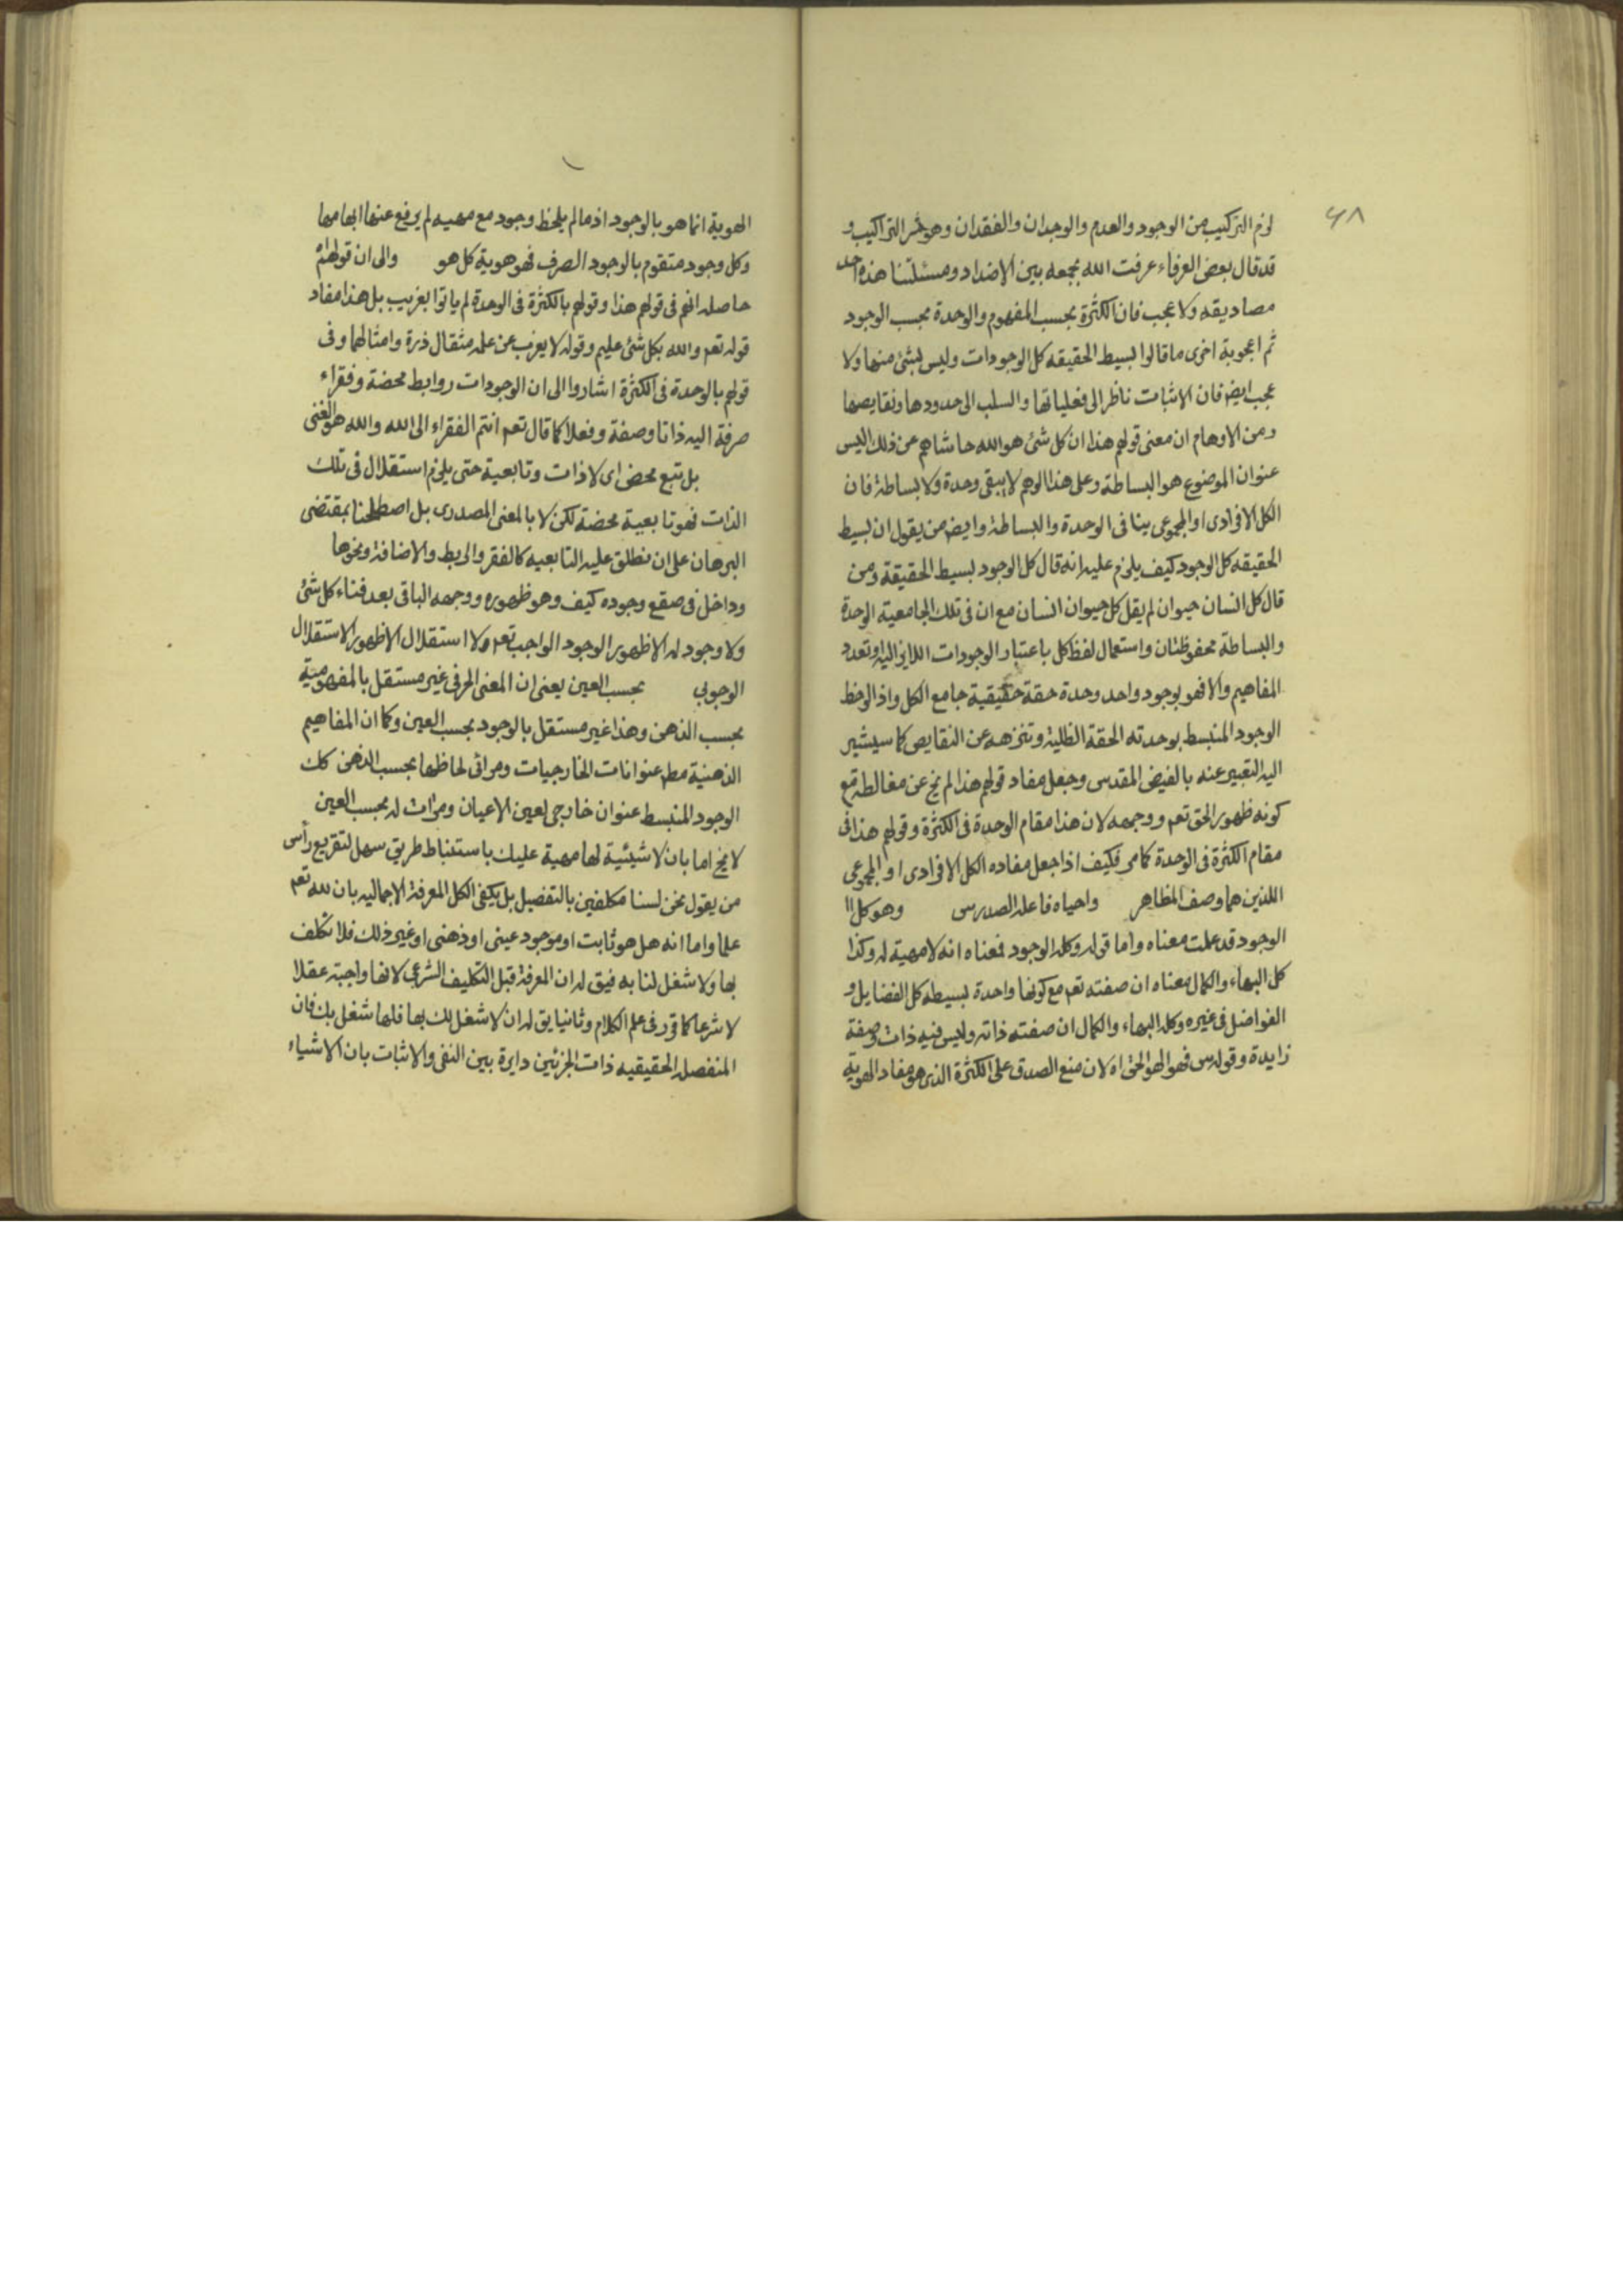 ۶۸
لزم التركيب من الوجود والعدم والوجدان والفقدان وهو شر التراكيب و
قد قال بعض العرفاء عرفت الله بجمعه بين الاضداد ومسئلتنا هذه احد
مصاديقه ولا عجب فان الكثرة بحسب المفهوم والوحدة بحسب الوجود
ثم اعجوبة اخرى ما قالوا بسيط الحقيقه كل الوجودات وليس بشئ منها ولا
عجب ايض فان الاثبات ناظر الى فعلياتها والسلب الى حدودها ونقايصها
ومن الاوهام ان معنى قولهم هذا ان كل شئ هو الله حاشاهم عن ذلك اليس
عنوان الموضوع هو البساطة وعلى هذا الوهم لا يبقى وحدة ولا بساطة فان
الكل الافرادى او المجموعى ينافى الوحدة والبساطة وايض من يقول ان بسيط
الحقيقه كل الوجود كيف يلزم عليه انه قال كل الوجود بسيط الحقيقة ومن
قال كل انسان حيوان لم يقل كل حيوان انسان مع ان فى تلك الجامعية الوحدة
والبساطة محفوظتان واستعمال لفظ كل باعتبار الوجودات اللايزاليه وتعدد
المفاهيم والا فهو بوجود واحد وحدة حقة حقيقية جامع الكل واذا لوحظ
الوجود المنبسط بوحدته الحقة الظلية وتنزهه عن النقايص كما سيشير
اليه التعبير عنه بالفيض المقدس وجعل مفاد قولهم هذا لم يخ عن مغالطه مع
كونه ظهور الحق تعم ووجهه لان هذا مقام الوحدة فى الكثرة وقولهم هذا فى
مقام الكثرة فى الوحدة كما مر فكيف اذا جعل مفاده الكل الافرادى او المجموعى
اللذين هما وصف المظاهر واحياه فاعله الصدر س وهو كل اا
الوجود قد علمت معناه واما قوله وكله الوجود فمعناه انه لا مهية له وكذا
كل البهاء والكمال معناه ان صفته تعم مع كونها واحدة بسيطه كل الفضايل و
الفواضل فى غيره وكله البهاء والكمال ان صفته ذاته وليس فيه ذات وصفة
زايدة وقوله س فهو الهو الحق اه لان منع الصدق على الكثرة الذى هو مفاد الهوية
الهوية انما هو بالوجود اذ ما لم يلحظ وجود مع مهيه لم يرفع عنها ابهامها
وكل وجود متقوم بالوجود الصرف فهو هوية كل هو والى ان قولهم اه
حاصله انهم فى قولهم هذا وقولهم بالكثرة فى الوحدة لم ياتوا بغريب بل هذا مفاد
قوله تعم والله بكل شئ عليم وقوله لا يعزب عن علمه مثقال ذرة وامثالهما وفى
قولهم بالوحدة فى الكثرة اشاروا الى ان الوجودات روابط محضة وفقراء
صرفة اليه ذاتا وصفة وفعلا كما قال تعم انتم الفقراء الى الله والله هو الغنى
بل تبع محض اى لا ذات وتابعية حتى يلزم استقلال فى تلك
الذات فهو تابعية محضة لكن لا بالمعنى المصدرى بل اصطلحنا بمقتضى
البرهان على ان نطلق عليه التابعيه كالفقر والربط والاضافة ونحوها
وداخل فى صقع وجوده كيف وهو ظهوره ووجهه الباقى بعد فناء كل شئ
ولا وجود له الا ظهور الوجود الواجب تعم ولا استقلال الا ظهور الاستقلال
الوجوبي بحسب العين يعنى ان المعنى الحرفى غير مستقل بالمفهومية
بحسب الذهن وهذا غير مستقل بالوجود بحسب العين وكما ان المفاهيم
الذهنية مطم عنوانات الخارجيات ومرائى لحاظها بحسب الذهن كك
الوجود المنبسط عنوان خارجى لعين الاعيان ومرات له بحسب العين
لا يخ اما بان لا شيئية لها مهية عليك باستنباط طريق سهل لتقريع رأس
من يقول نحن لسنا مكلفين بالتفصيل بل يكفى الكل المعرفة الاجماليه بان لله تعم
علما واما انه هل هو ثابت او موجود عينى او ذهنى او غير ذلك فلا تكلف
بها ولا شغل لنا به فيق له ان المعرفة قبل التكليف الشرعى لانها واجبة عقلا
لا شرعا كما قرر فى علم الكلام وثانيا يق له ان لا شغل لك بها فلها شغل بك فان
المنفصله الحقيقيه ذات الجزئين دايرة بين النفى والاثبات بان الاشياء